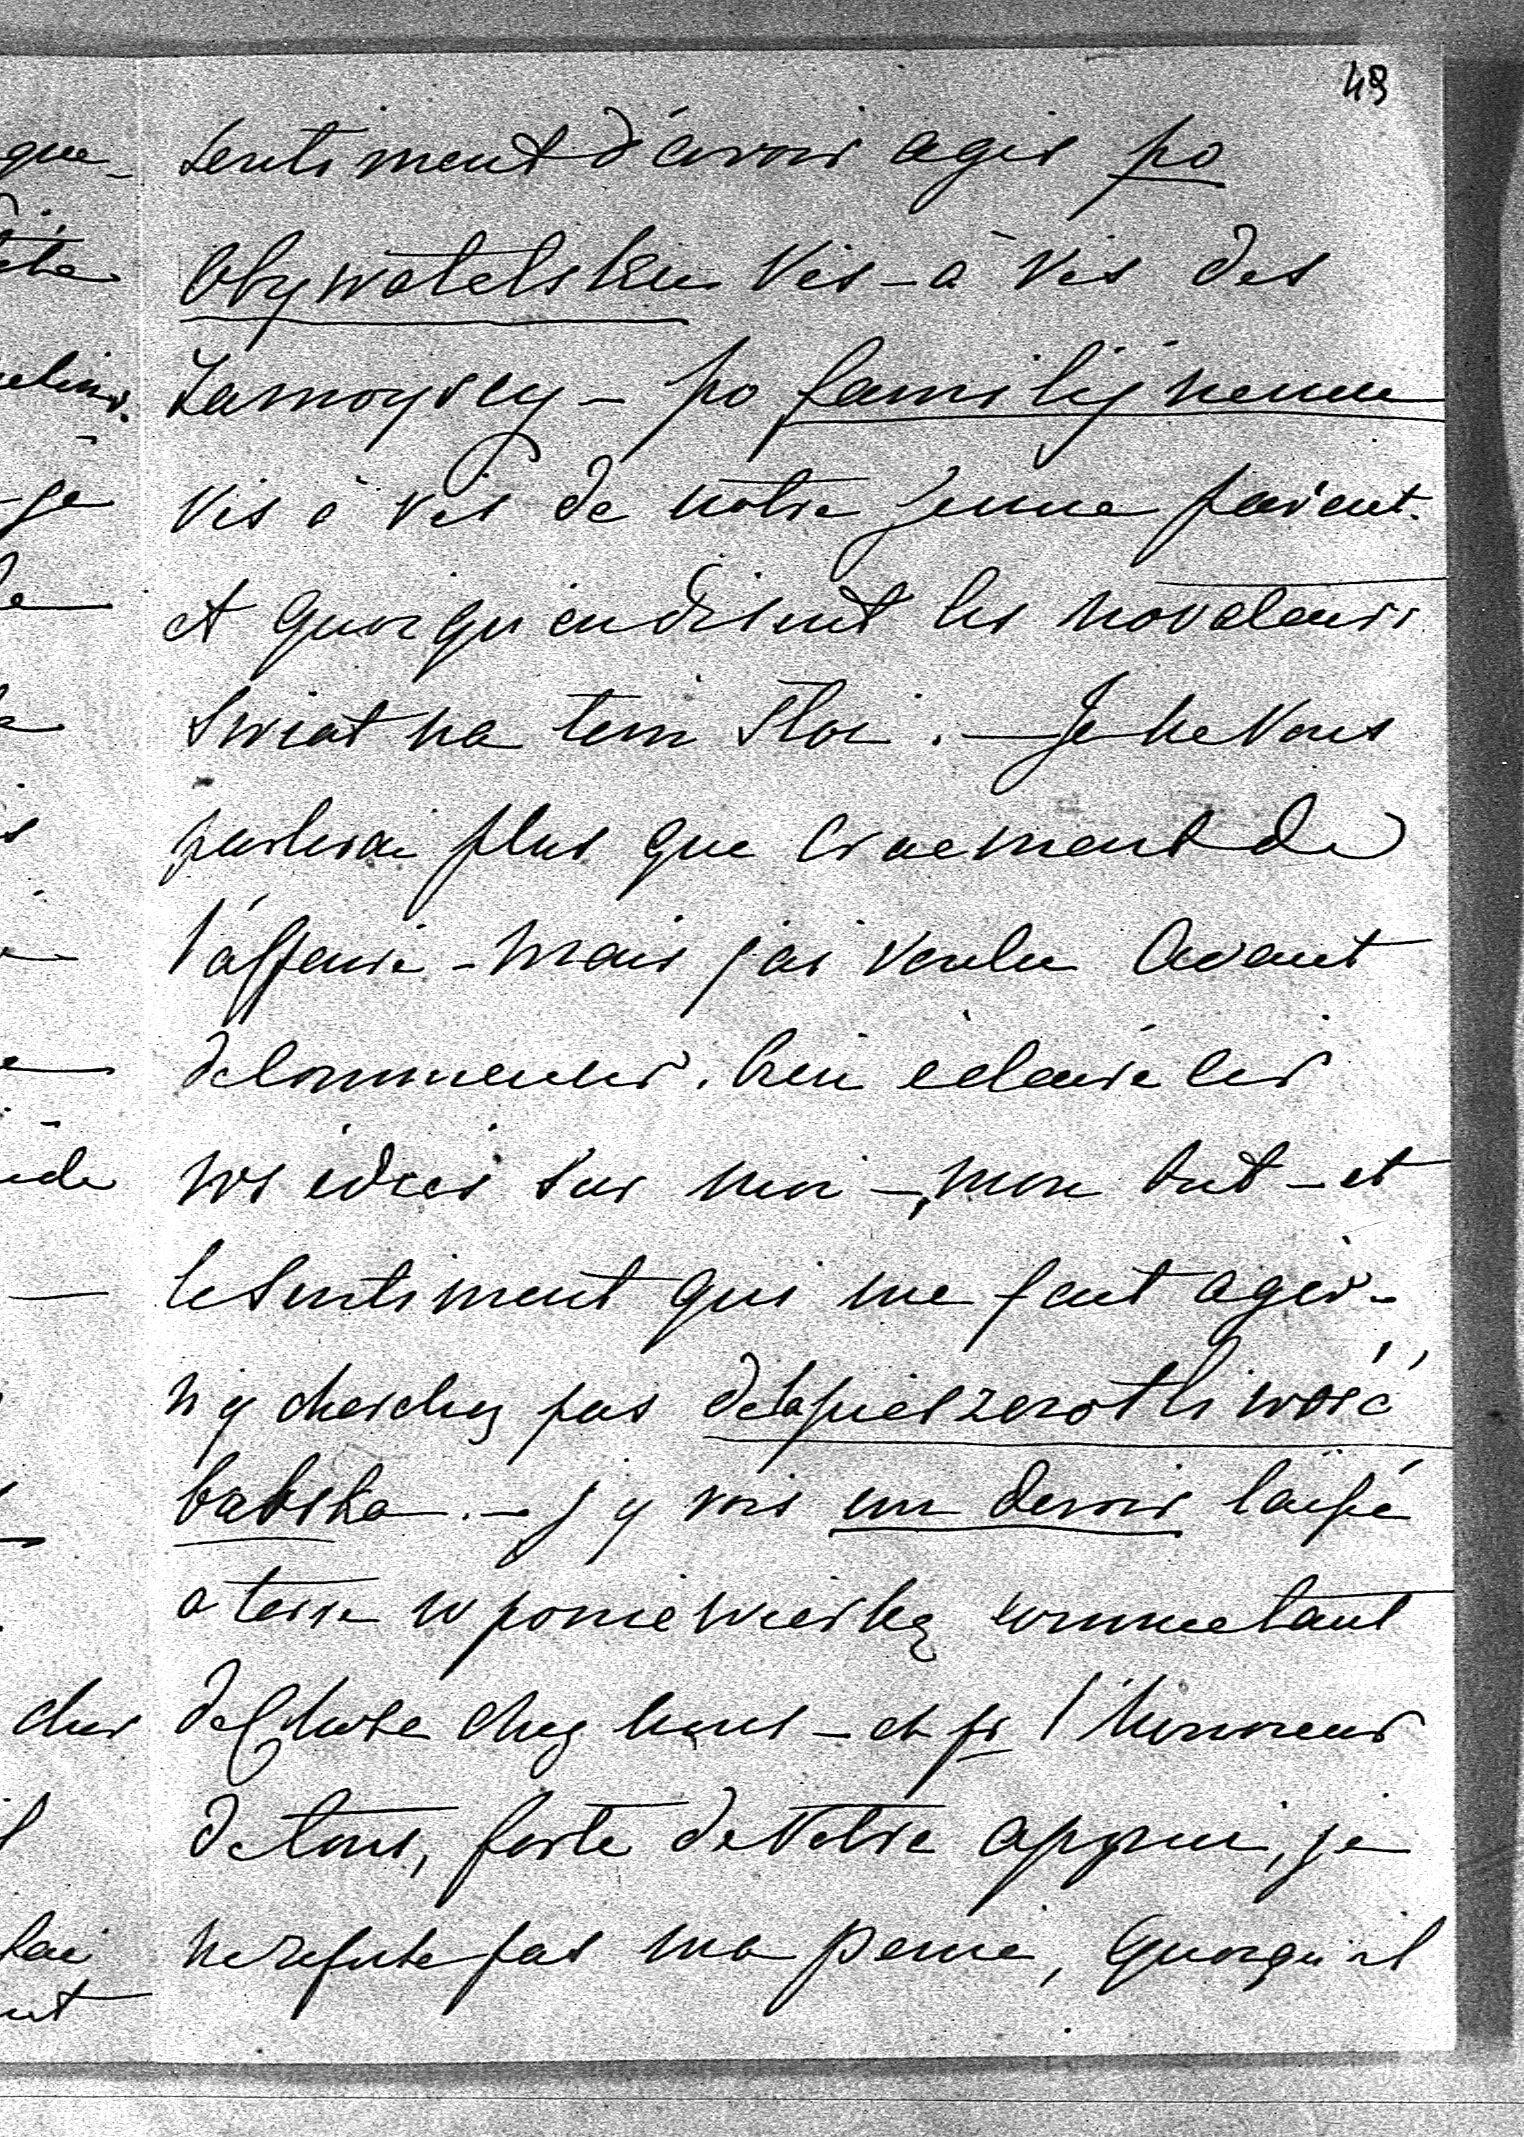 49
sentiment d'avoir agir po
Obywatelsku vis-à vis des
Zamoyscy - po familijnemu
vis à vis de notre jeune parent.
et quoiqu'en disent les novateurs
Swiat na tem stoi. — Je ne vous
parlerai plus que crûement de
l'affaire - mais j'ai voulu avant
de commencer, bien éclairé cir
vos idées sur moi -, mon but - et
le sentiment qui me fait agir -
n'y cherchez pas de la pieszczotliwość
babska. - j'y vois un devoir laissé
a terre w poniewierkę comme tant
de chose chez nous - et pr l'honneur
de tous, forte de votre appui, je
ne refuse pas ma peine, quoiqu'il